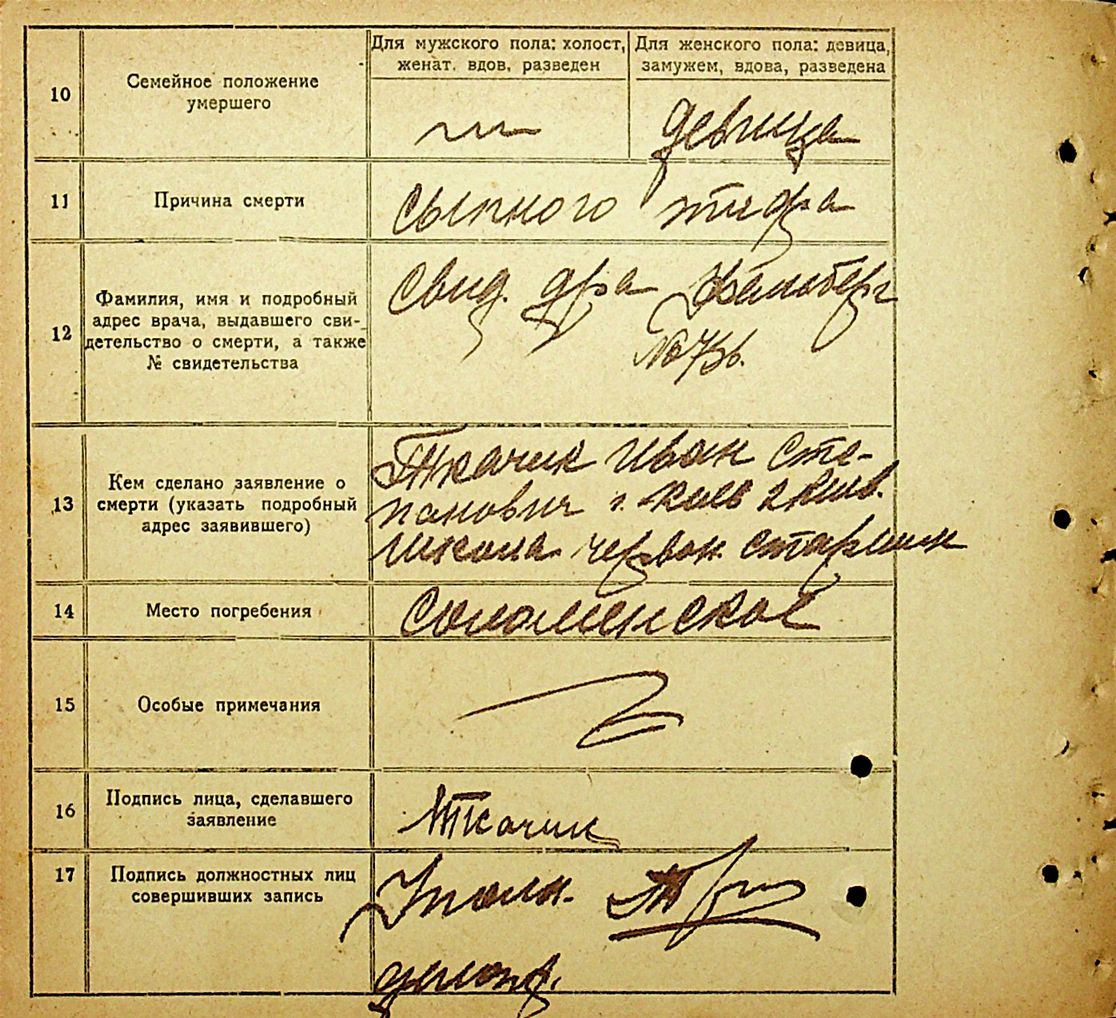 Для мужского пола: холост, женат, вдов, разведен
Для женского пола: девица, замужем, вдова, разведена
10
Семейное положение
умершего
девица
11
Причина смерти
сыпного тифа
12
Фамилия, имя и подробный
адрес врача, выдавшего сви-
детельство о смерти, а также
№ свидетельства
свид. д-ра
№
13
Кем сделано заявление о
смерти (указать подробный
адрес заявившего)
Ткачик Иван Сте-
панович г. Киев 2
школа червон старшин
14
Место погребения
Соломенское
15
Особые примечания
16
Подпись лица, сделавшего
заявление
Ткачик
17
Подпись должностных лиц
совершивших запись
Уполн.